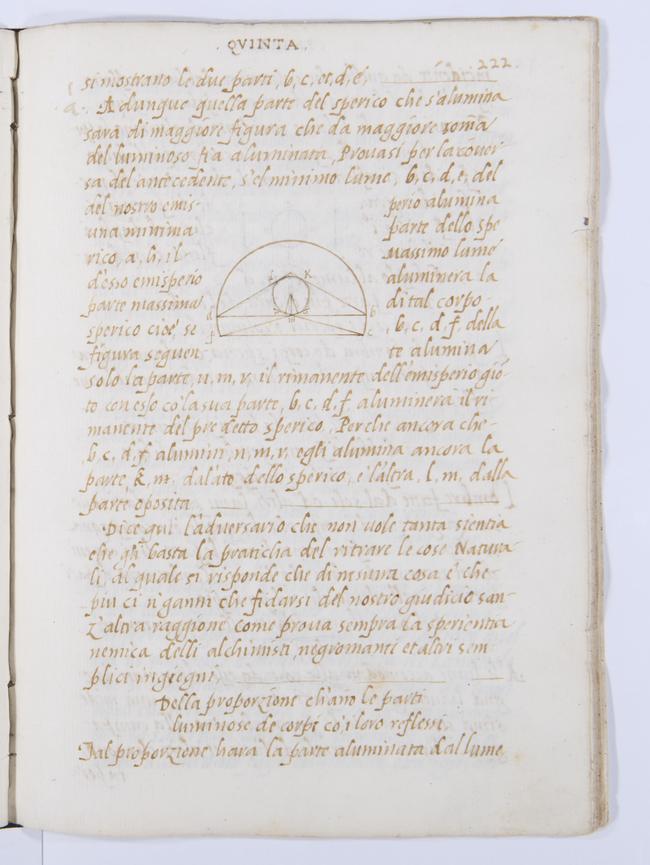 . QVINTA .
222
si mostrano le due parti, b, c, et, d, e,
Adunque quella parte del sperico che s'alumina
sara di maggiore figura che da maggiore somā
del luminoso fia aluminata, Provasi per la cōver
sa del antecedente, s'el minimo lume, b, c, d, e, del
del nostro emis- perio alumina
una minima parte dello spe
rico, a, h, il Massimo lume
d'esso emisperio aluminera la
parte massima di tal corpo-
sperico cioè, se , b, c, d, f, della
figura seguen te alumina
solo la parte, n, m, r, il rimanente dell'emisperio giō-
to con esso cō la sua parte, b, c, d, f, aluminera il ri-
manente del predetto sperico, Perche ancora che-
b, c, d, f, alumini, n, m, r, egli alumina ancora la
parte, k, m, dalato dello sperico, e l'altra, l, m, dalla
parte oposita
Dice qui l'adversario che non vole tanta sientia
che gli basta la praticha del ritrare le cose Natura-
li, al quale si risponde che di nisuna cosa è che
piu ci n'ganni che fidarsi del nostro giudicio san-
z'altra raggione come prova sempra la sperientia
nemica delli alchimisti, negromanti et altri sem-
plici ingiegni
Della proporzione ch'ano le parti
luminose de corpi cō i loro reflessi
Tal proporzione hara la parte aluminata dal lume